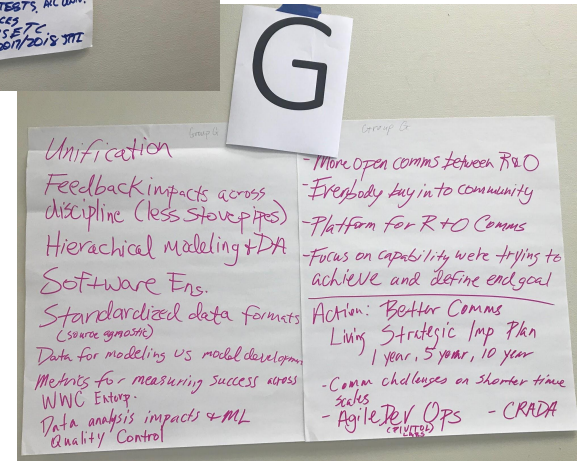 TESTS,
2017/2018
G
Group G
Unification
Feedback impacts across
discipline (less stovepipes)
Hierachical modeling + DA
Software Ens.
Standardized data formats
(source agnostic)
Data for modeling vs model developmen
Metrics for measuring success across
WWC Enterp.
Data analysis impacts + ML
Quality Control
Group G
- More open comms between R&O
- Everybody buy into community
- Platform for R+O Comms
- Focus on capability we're trying to
achieve and define end goal
Action: Better Comms
Living Strategic Imp Plan
1 year, 5 year, 10 year
- Comm challenges on shorter time
scales
- Agile Dev Ops - CRADA
(PIVITOL
LABS)